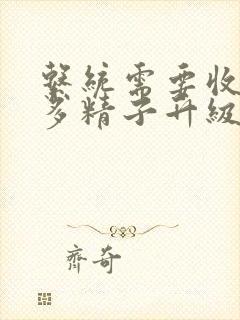 繫統需要收
多精子升級
齊奇